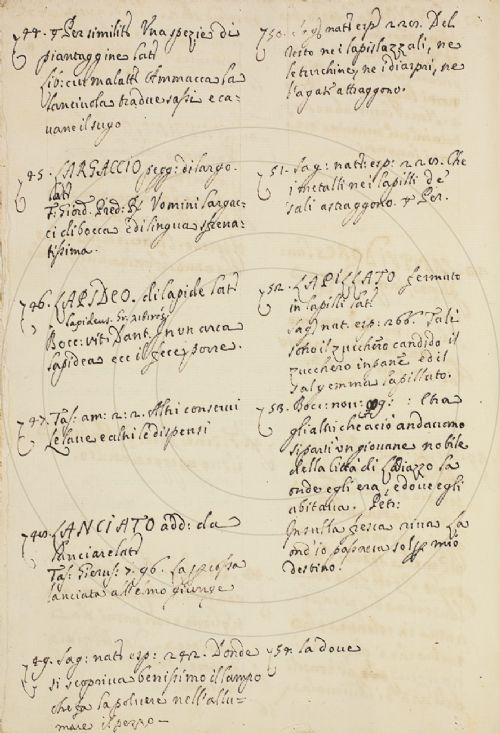 744. ꝑ Per similit: Una spezie di
piantaggine lat:
Lib: cur: malatt: Ammacca la
lanciuola tra due sassi e ca-
vane il sugo
745. LARGACCIO pegg: di largo.
lat:
F. Giord. Pred: R. Uomini largac-
ci di bocca e di lingua sfrena-
tissima.
746. LAPIDEO. di lapide lat:
lapideus.
Bocc: vit: Dant: in un arca
lapidea ecc il fece porre.
747. Tass: am: 2. 2. Altri conservi
Le lave e altri le dispensi
748. LANCIATO add: da
lanciare lat:
Tass: Gerus: 7. 96. La percossa
lanciata all'elmo giunge
749. Sag: nat: esp: 242. Donde
si scopriva benissimo il lampo
che fa la polvere nell'allu-
mare il pezzo
750. Sag: nat: esp: 228. Del
resto nè i lapislazzali, ne
le turchine, ne i diaspri, ne
l'agate attraggono.
751. Sag: nat: esp: 228. Che
i metalli nè i lapilli de
sali attraggono. ꝑ Per.
752. LAPILLATO fermato
in lapilli lat:
Sag: nat: esp: 266. Tali
sono il zucchero candido il
zucchero in pane ed il
Salgemma lapillato.
753. Bocc: nov: 99: : E tra
gli altri che a ciò andarono
si partì un giovane nobile
della città di
onde egli era, e dove egli
abitava. Petr:
In su la fresca riva La
ond'io passava sol per mio
destino.
754. la dove